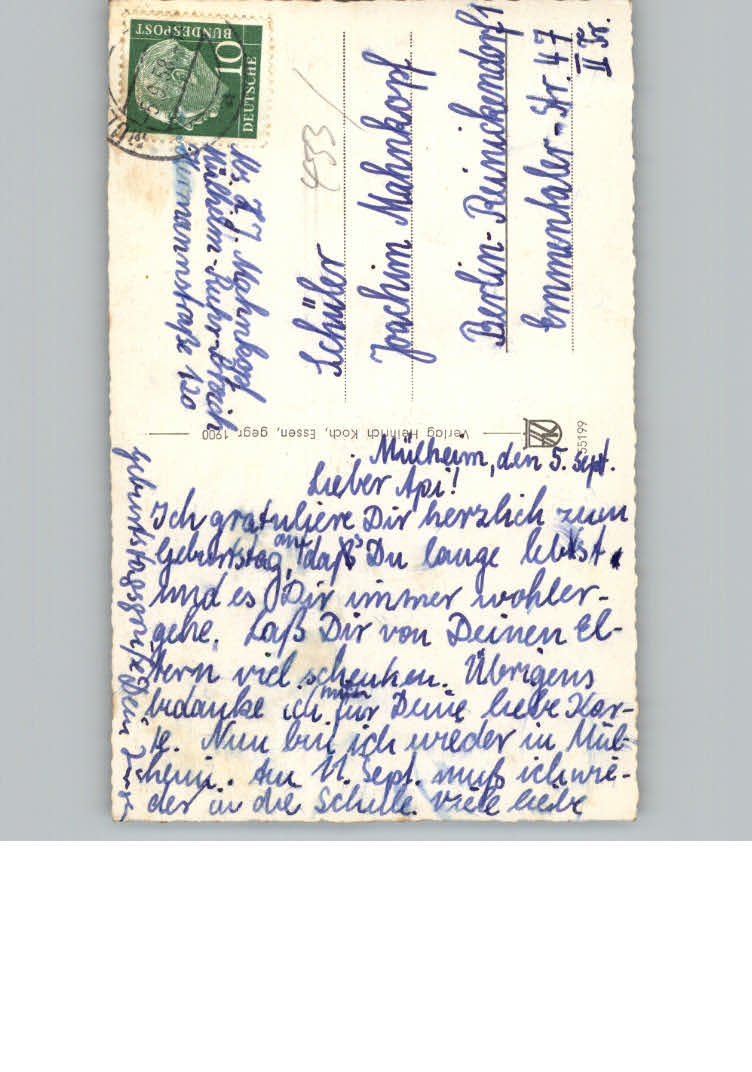 Mülheim, den 5. Sept.
Lieber Api!
Ich gratuliere Dir herzlich zum
Geburtstag, daß Du lange lebst
und es Dir immer wohler-
gehe. Laß Dir von Deinen El-
tern viel schenken. Übrigens
bedanke ich mich für Deine liebe Kar-
te. Nun bin ich wieder in Mül-
heim. Am 11. Sept. muß ich wie-
der in die Schule. Viele liebe
Geburtstagsgrüße Dein
Abs. Mahnkopf
Mülheim-Ruhr-Broich
120
Schüler
Joachim Mahnkopf
Berlin-Reinickendorf 1
Emmentaler-Str. 47
II Tr.
4533
DEUTSCHE
BUNDESPOST
10
Verlag Heinrich Koch, Essen, gegr. 1900
55199